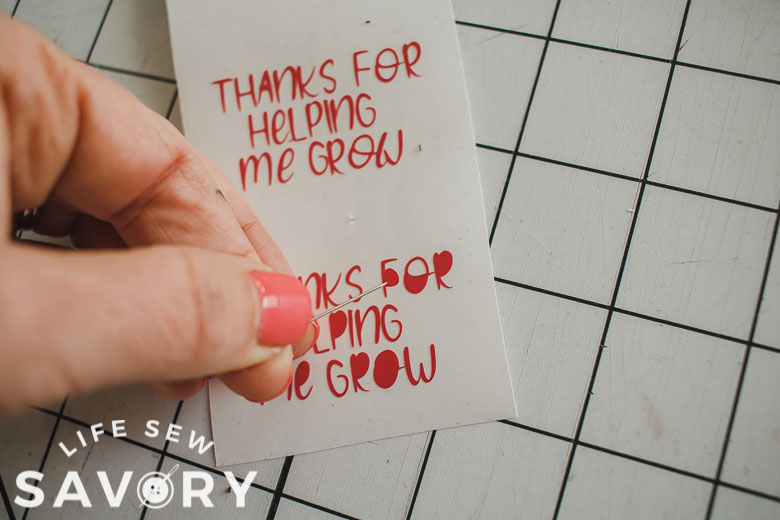 THANKS FOR
HELPING
ME GROW
NKS FOR
LPING
ME GROW
LIFE SEW
SAVORY